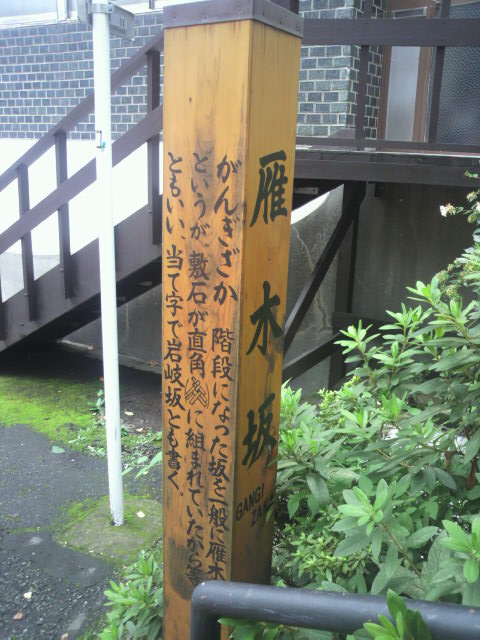 雁木坂
GANGI
がんぎざか 階段になった坂を一般に雁木
というが、敷石が直角に組まれていたから等
ともいい、当て字で岩岐坂とも書く。